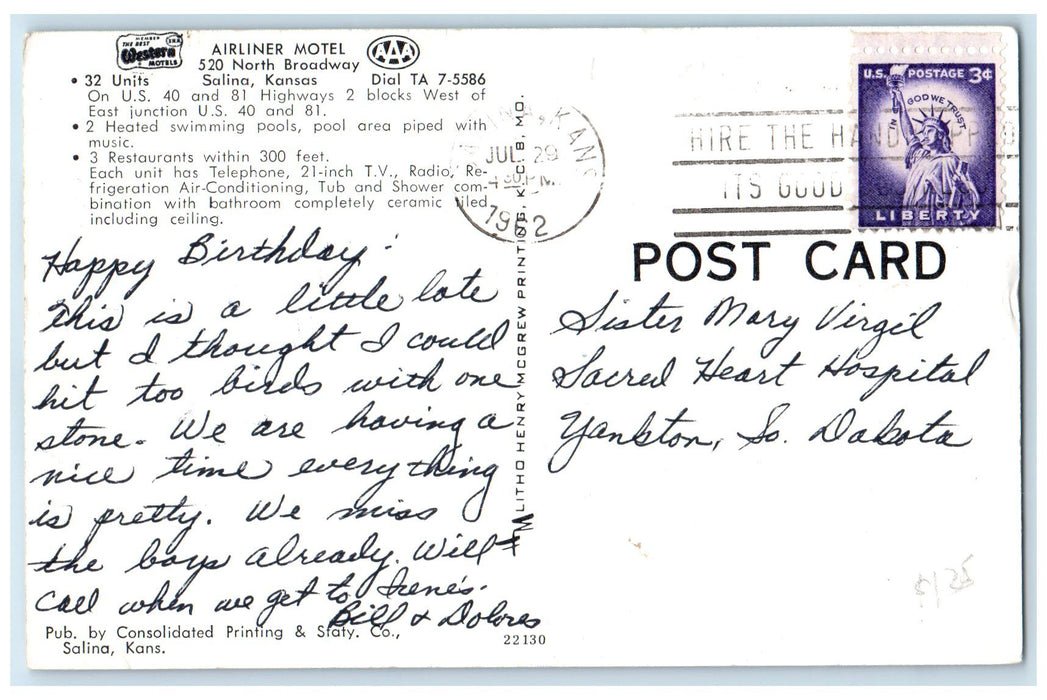 MEMBER
THE BEST
Western
MOTELS
AIRLINER MOTEL
520 North Broadway
AAA
• 32 Units Salina, Kansas Dial TA 7-5586
On U.S. 40 and 81 Highways 2 blocks West of
East junction U.S. 40 and 81.
• 2 Heated swimming pools, pool area piped with
music.
• 3 Restaurants within 300 feet.
Each unit has Telephone, 21-inch T.V., Radio, Re-
frigeration Air-Conditioning, Tub and Shower com-
bination with bathroom completely ceramic tiled
including ceiling.
Happy Birthday!
This is a little late
but I thought I could
hit too birds with one
stone. We are having a
nice time everything
is pretty. We miss
the boys already. Will
call when we get to Irene's.
Bill & Dolores
Pub. by Consolidated Printing & Staty. Co.,
Salina, Kans.
22130
LITHO HENRY MCGREW PRINTING, K. C. 8, MO.
KANS
JUL 29
4 30 PM
1962
HIRE THE
ITS GOOD
U.S. POSTAGE 3¢
IN GOD WE TRUST
LIBERTY
POST CARD
Sister Mary Virgil
Sacred Heart Hospital
Yankton, So. Dakota